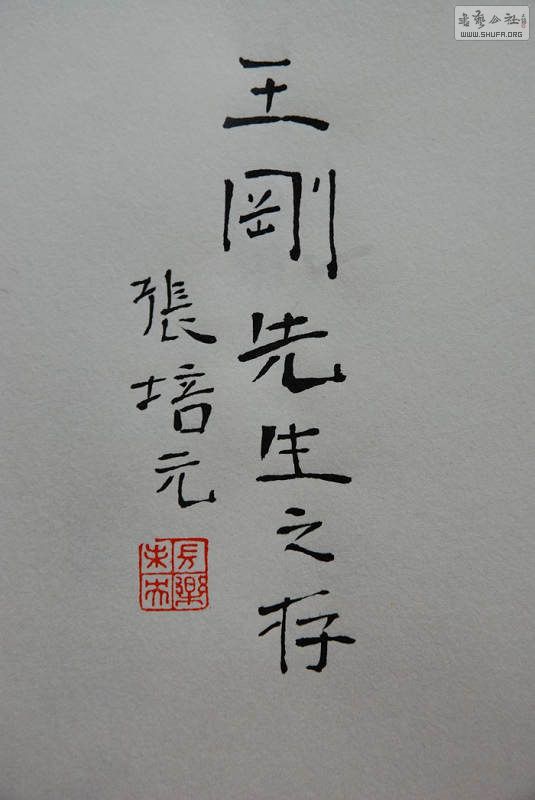 書藝公社
WWW.SHUFA.ORG
王剛先生之存
張培元
長樂
未央